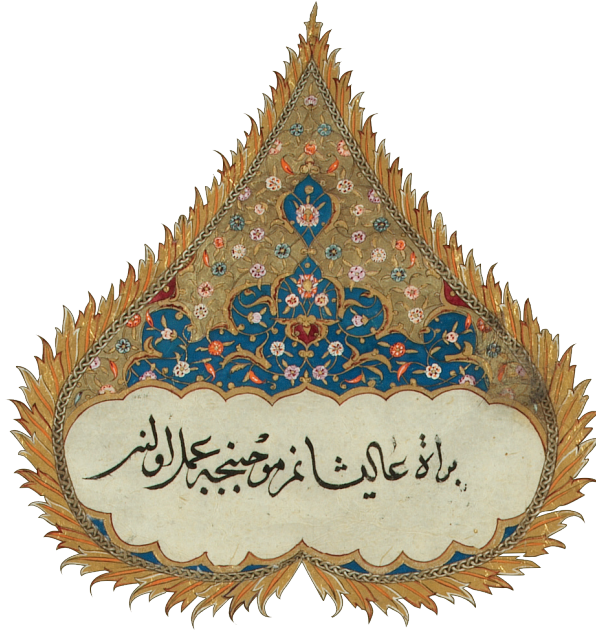 براة عاليشانمز موجبنجه عمل اولنه